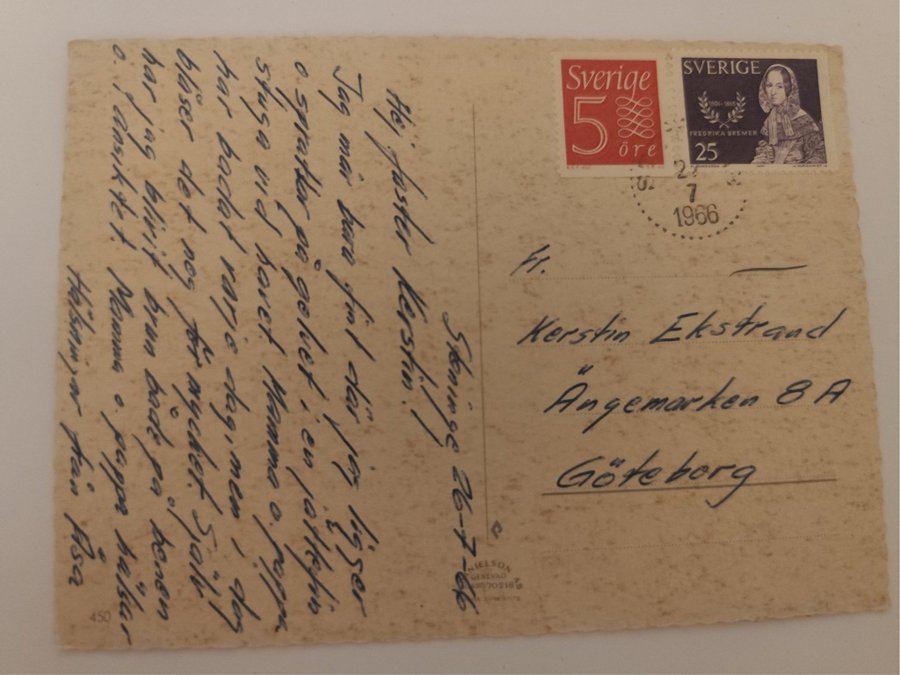 Steninge 26-7-66
Hej faster Kerstin!
Jag mår bara fint där jag ligger
o sprattlar på golvet i en jättefin
stuga vid havet. Mamma o. pappa
har badat varje dag, men i dag
blåser det nog för mycket. Själv
har jag blivit brun både på benen
o. i ansiktet. Mamma o. pappa hälsar
Hälsningar från Åsa
Sverige
5
öre
SVERIGE
FREDRIKA BREMER
25
7
1966
Fr.
Kerstin Ekstrand
Ängemarken 8 A
Göteborg
GENEVAD
450